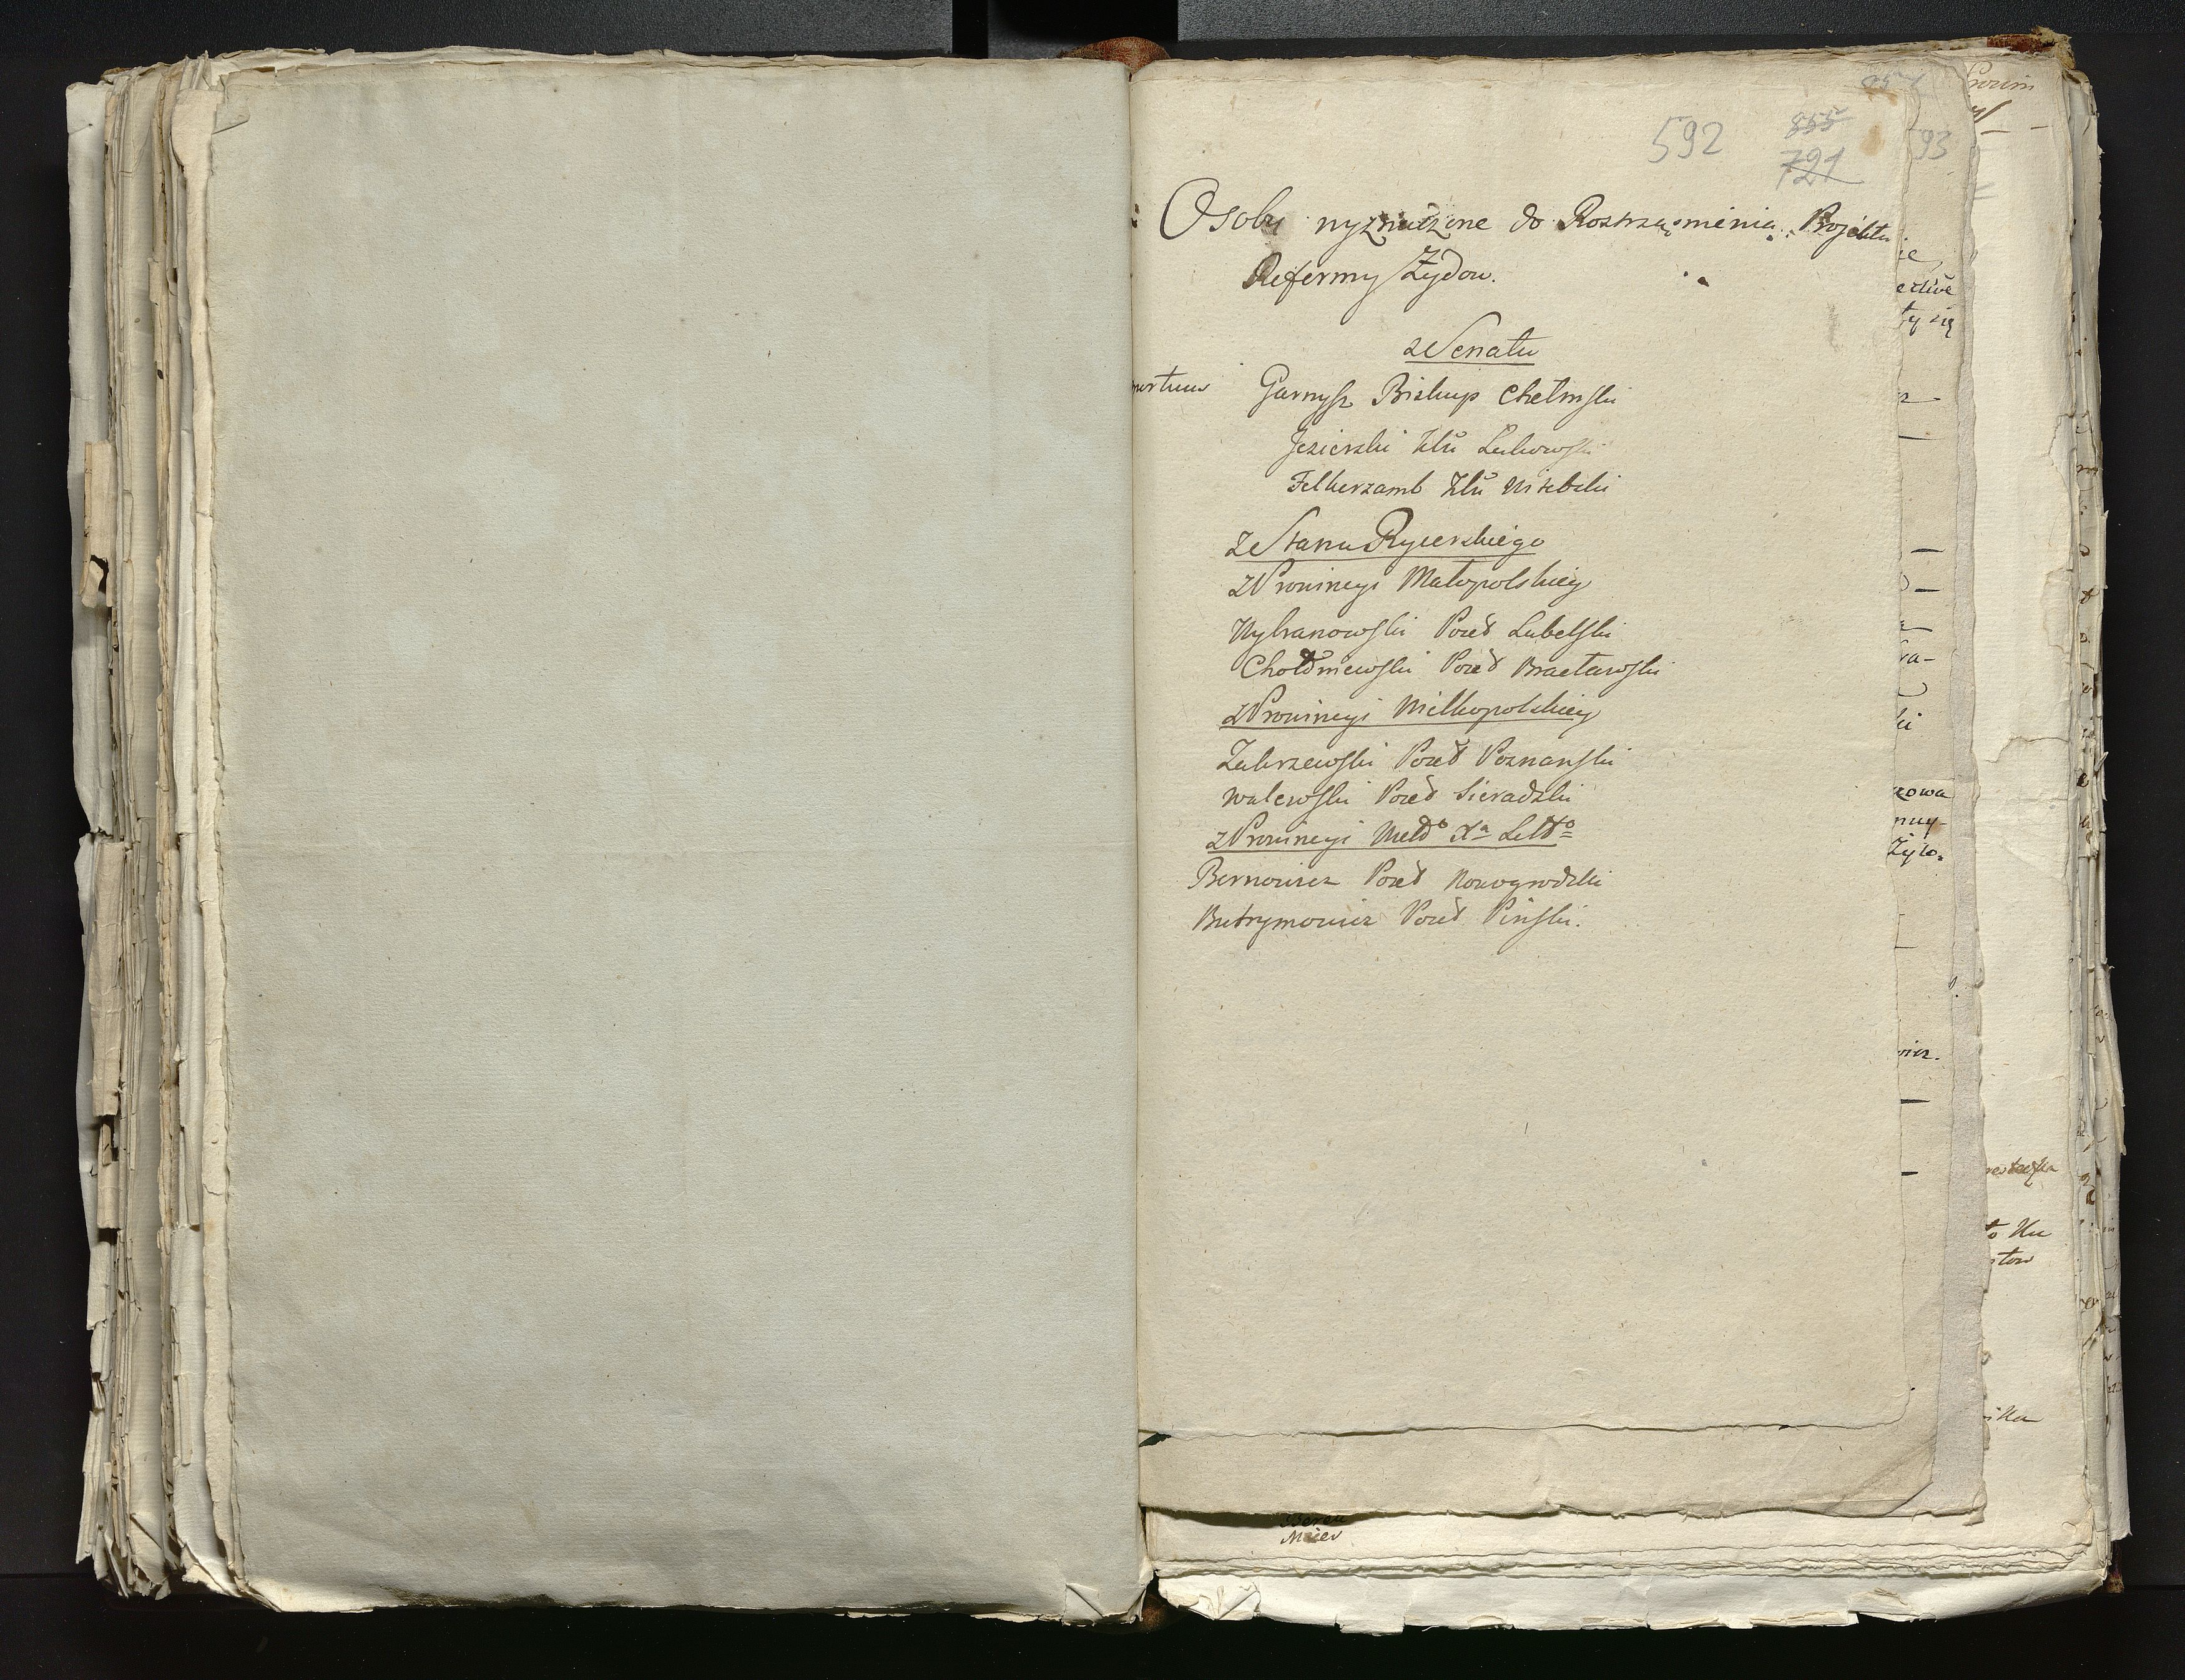 592
855
721
93
Osoby wyznaczone do Roztrząśnienia Projektu
Reformy Żydow.
z Senatu
mortuus Garnysz Biskup Chełmski
Jezierski Kłn Łukowski
Felkerzamb Kłn Witebski
z Stanu Rycerskiego
z Prowincyi Małopolskiey
Wybranowski Poseł Lubelski
Chołoniewski Poseł Bracławski
z Prowincyi Wielkopolskiey
Zakrzewski Poseł Poznanski
Walewski Poseł Sieradzki
z Prowincyi Wielo Xa Litto
Bernowicz Poseł Nowogrodzki
Butrymowicz Poseł Piński.